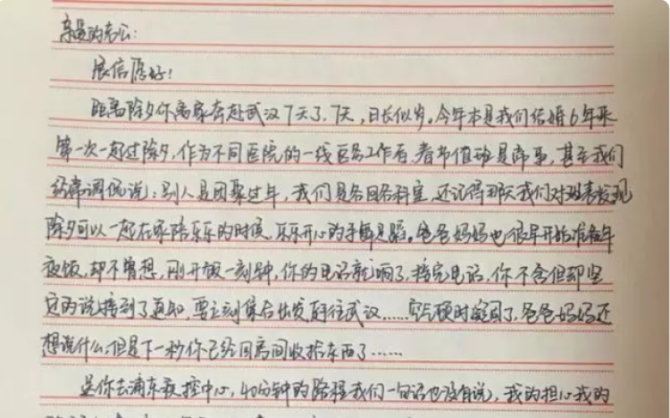 亲爱的老公:
展信Ⅰ好!
距离除夕你离家奔赴武汉7天了,7天,日长似岁。今年本是我们结婚6年来
第一次一起过除夕,作为不同医院的一线医务工作者,春节值班是常事,甚至我们
经常调侃说:别人是团聚过年,我们是各回各科室,还记得那天我们对班表发现
除夕可以一起在家陪乐乐的时候,乐乐开心的手舞足蹈。爸爸妈妈也很早开始准备年
夜饭,却不曾想,刚开饭一刻钟,你的电话就响了,接完电话,你不舍但却坚
定的说接到了通知,要立刻集合出发前往武汉......空气顿时凝固了,爸爸妈妈还
想说什么,但是下一秒你已经回房间收拾东西了......
送你去浦东疾控中心,40分钟的路程我们一句话也没有说,我的担心我的